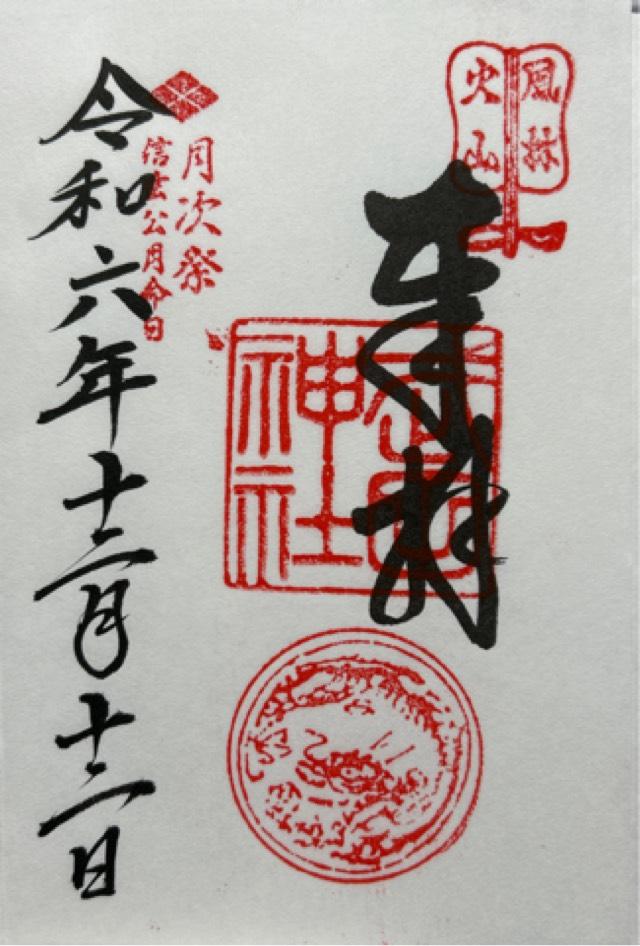 風林
火山
奉拝
武田
神社
月次祭
信玄公月命日
令和六年十二月十二日